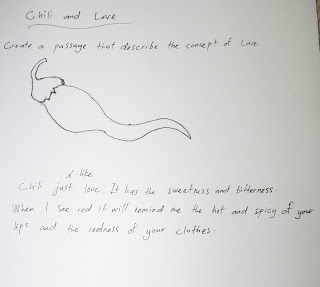 Chili and Love
Create a passage that describe the concept of Love
Chili just like love It has the sweetness and bitterness.
When I see red it will remind me the hot and spicy of your
lips and the redness of your clothes.